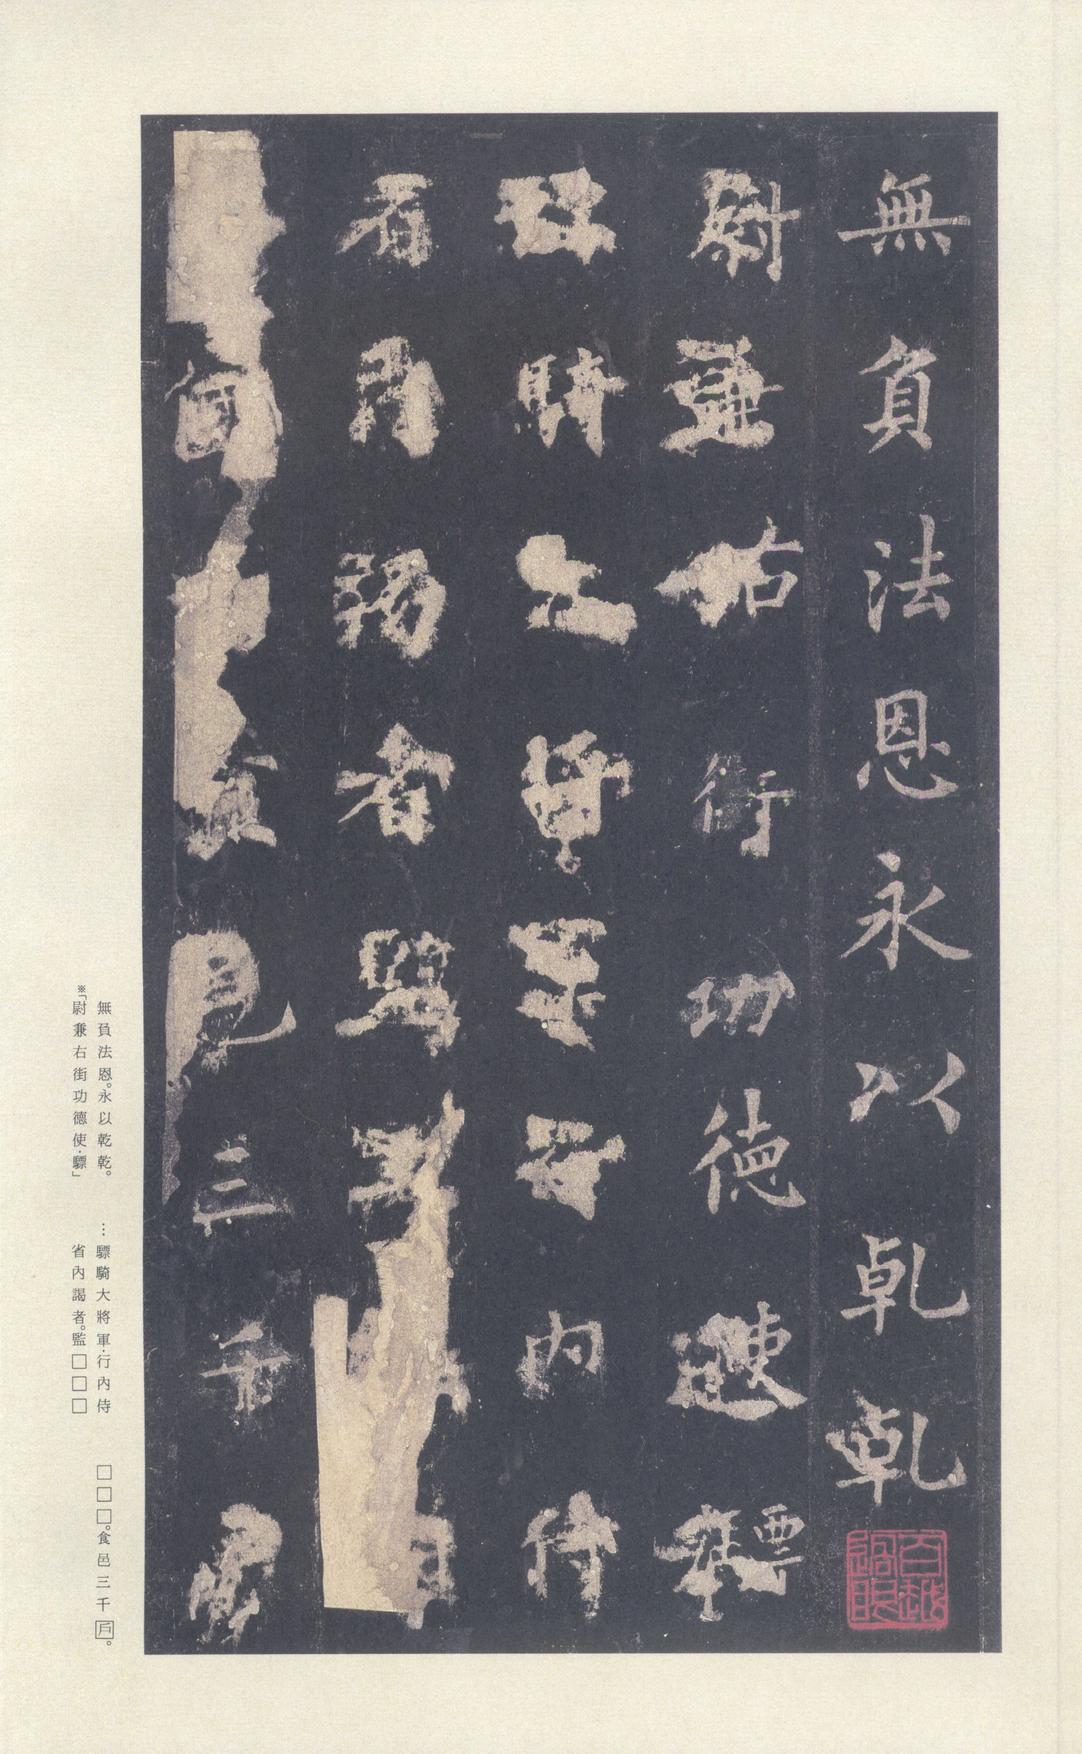 無負法恩永以乾乾
尉兼右街功德使驃
騎大將軍行內侍
省內謁者監
食邑三千戶
無負法恩。永以乾乾。
※「尉兼右街功德使·驃」
…驃騎大將軍·行內侍
省內謁者。監□□□
□□□。食邑三千戶。